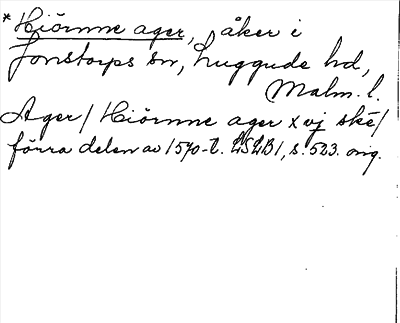 * Hiörnne ager, åker i
Jonstorps sn, Luggude hd,
Malm. l.
Ager / Hiörnne ager x vj ske /
förra delen av 1570-t. LSLB 1, s. 523. orig.